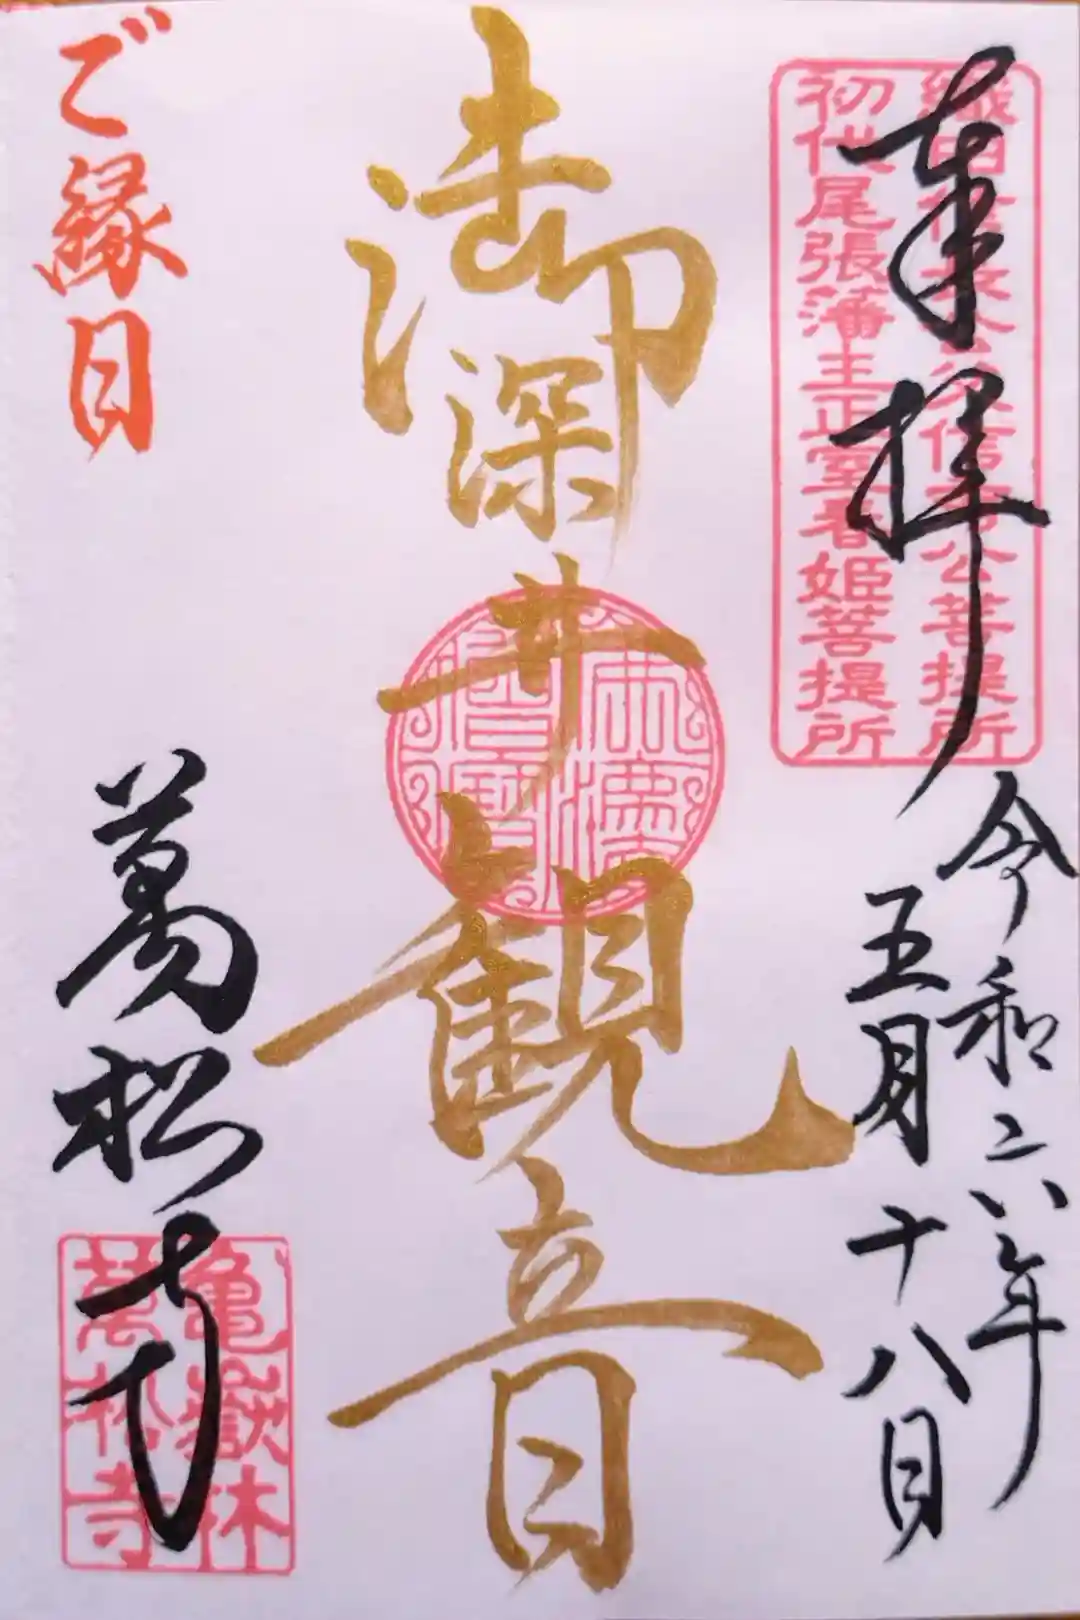 奉拝
織田信長公父信秀公菩提所
初代尾張藩主正室春姫菩提所
令和六年
五月十八日
御深井観音
佛法僧寶
ご縁日
萬松寺
亀嶽林
萬松寺